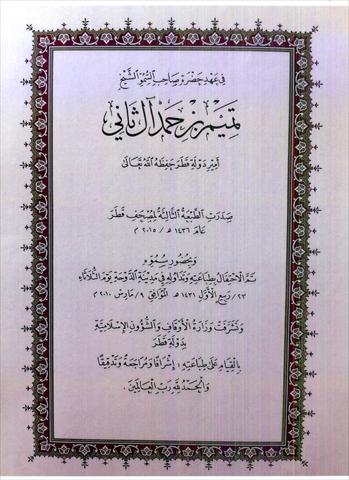 في عهد حضرة صاحب السمو الشيخ
تميم بن حمد آل ثاني
أمير دولة قطر حفظه الله تعالى
صدرت الطبعة الثالثة لمصحف قطر
عام ١٤٣٦ هـ / ٢٠١٥ م
وبحضور سموه
تم الاحتفال بطباعته وتداوله في مدينة الدوحة يوم الثلاثاء
٢٣ / ربيع الأول ١٤٣١ هـ الموافق ٩ / مارس ٢٠١٠ م
وتشرفت وزارة الأوقاف والشؤون الإسلامية
بدولة قطر
بالقيام على طباعته : إشرافا ومراجعة وتدقيقا
والحمد لله رب العالمين .